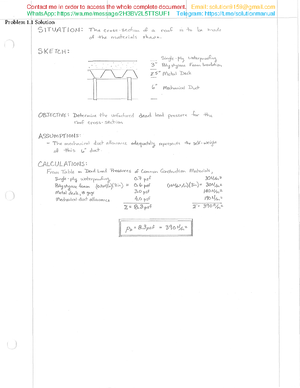 Contact me in order to access the whole complete document. Email: solution9159@gmail.com
WhatsApp: https://wa.me/message/2H3BV2L5TTSUF1 Telegram: https://t.me/solutionmanual
Problem 1.1 Solution
SITUATION: The cross-section of a roof is to be made
of the materials shown.
SKETCH:
Single-ply waterproofing
3" Polystyrene Foam Insulation
Metal Deck
6" Mechanical Duct
OBJECTIVE: Determine the unfactored dead load pressure for the
roof cross-section
ASSUMPTIONS:
- The mechanical duct allowance adequately represents the self-weight
of this 6" duct
CALCULATIONS:
From Table on Dead Load Pressures of Common Construction Materials,
Single-ply waterproofing 0.7 psf
Polystyrene foam
Metal deck, 18 gage 3.0 psf
Mechanical duct allowance 4.0 psf
Σ = 8.3 psf
P_D = 8.3 psf = 390 N/m²